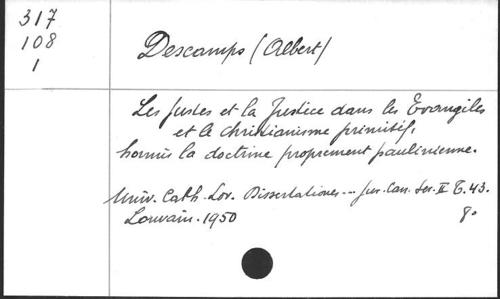 317
108
1
Descamps (Albert)
Les Justes et la Justice dans les Evangiles
et le christianisme primitif,
hormis la doctrine proprement paulinienne.
Univ. Cath. Lov. Dissertationes --- jur. Can. Ser. II T. 43.
Louvain. 1950
8°